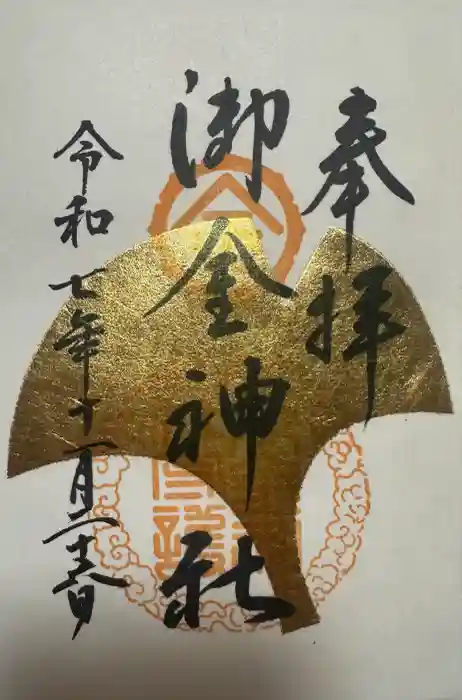 奉拝
御金神社
令和七年十一月二十六日